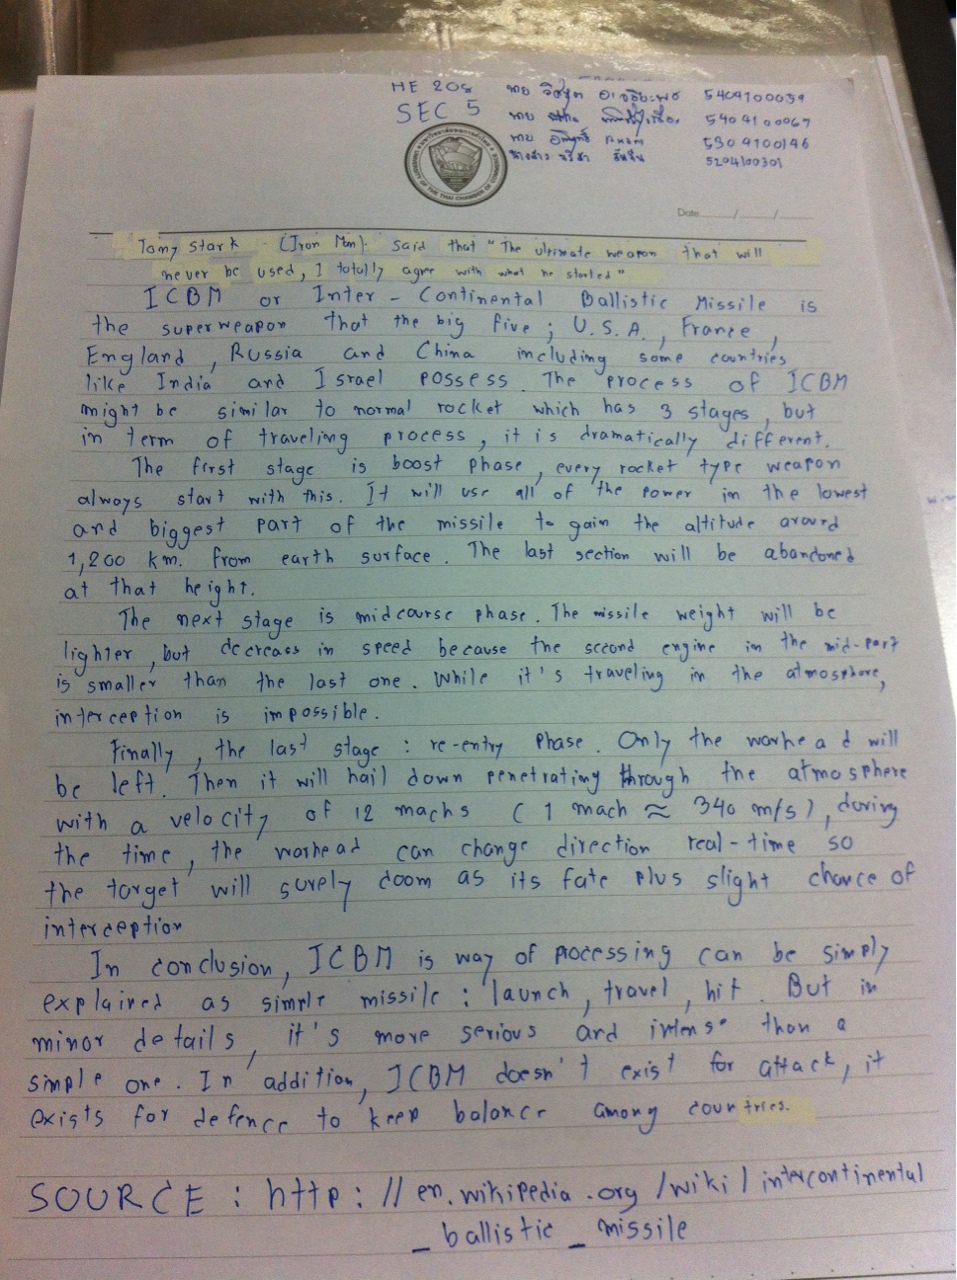 HE 208
SEC 5
นาย 5404100039
นาย 5404100067
นาย 5304100146
นางสาว 5204100301
UNIVERSITY OF THE THAI CHAMBER OF COMMERCE
Date / /
Tony Stark (Iron Man) said that "The ultimate weapon that will
never be used, I totally agree with what he started"
ICBM or Inter-Continental Ballistic Missile is
the superweapon that the big five; U.S.A., France,
England, Russia and China including some countries
like India and Israel possess. The process of ICBM
might be similar to normal rocket which has 3 stages, but
in term of traveling process, it is dramatically different.
The first stage is boost phase, every rocket type weapon
always start with this. It will use all of the power in the lowest
and biggest part of the missile to gain the altitude around
1,200 km. from earth surface. The last section will be abandoned
at that height.
The next stage is midcourse phase. The missile weight will be
lighter, but decreass in speed because the second engine in the mid-part
is smaller than the last one. While it's traveling in the atmosphere,
interception is impossible.
Finally, the last stage : re-entry phase. Only the warhead will
be left. Then it will hail down penetrating through the atmosphere
with a velocity of 12 machs (1 mach ≈ 340 m/s), during
the time, the warhead can change direction real-time so
the target will surely doom as its fate plus slight chance of
interception
In conclusion, ICBM is way of processing can be simply
explained as simple missile : launch, travel, hit. But in
minor details, it's more serious and intense than a
simple one. In addition, ICBM doesn't exist for attack, it
exists for defence to keep balance among countries.
SOURCE : http://en.wikipedia.org/wiki/intercontinental
_ballistic_missile